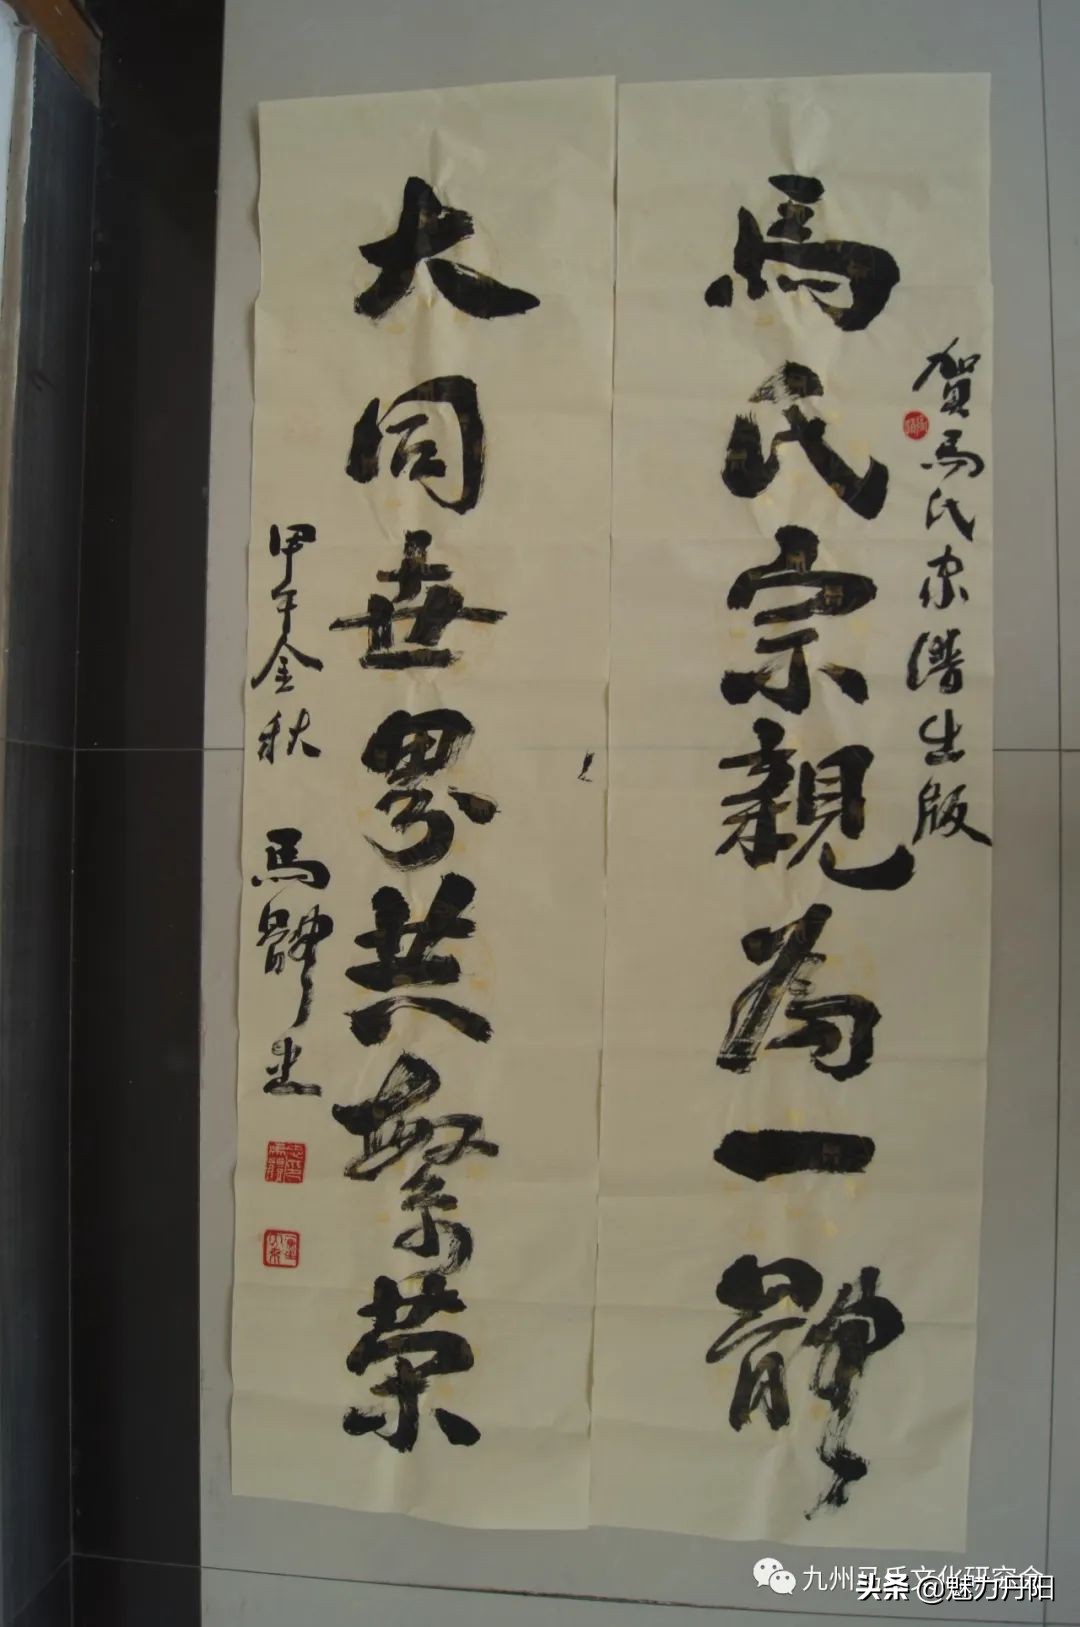 賀馬氏家譜出版
馬氏宗親為一體
大同世界共繁荣
甲午金秋
馬體書
九州马氏文化研究会
头条 @魅力丹阳